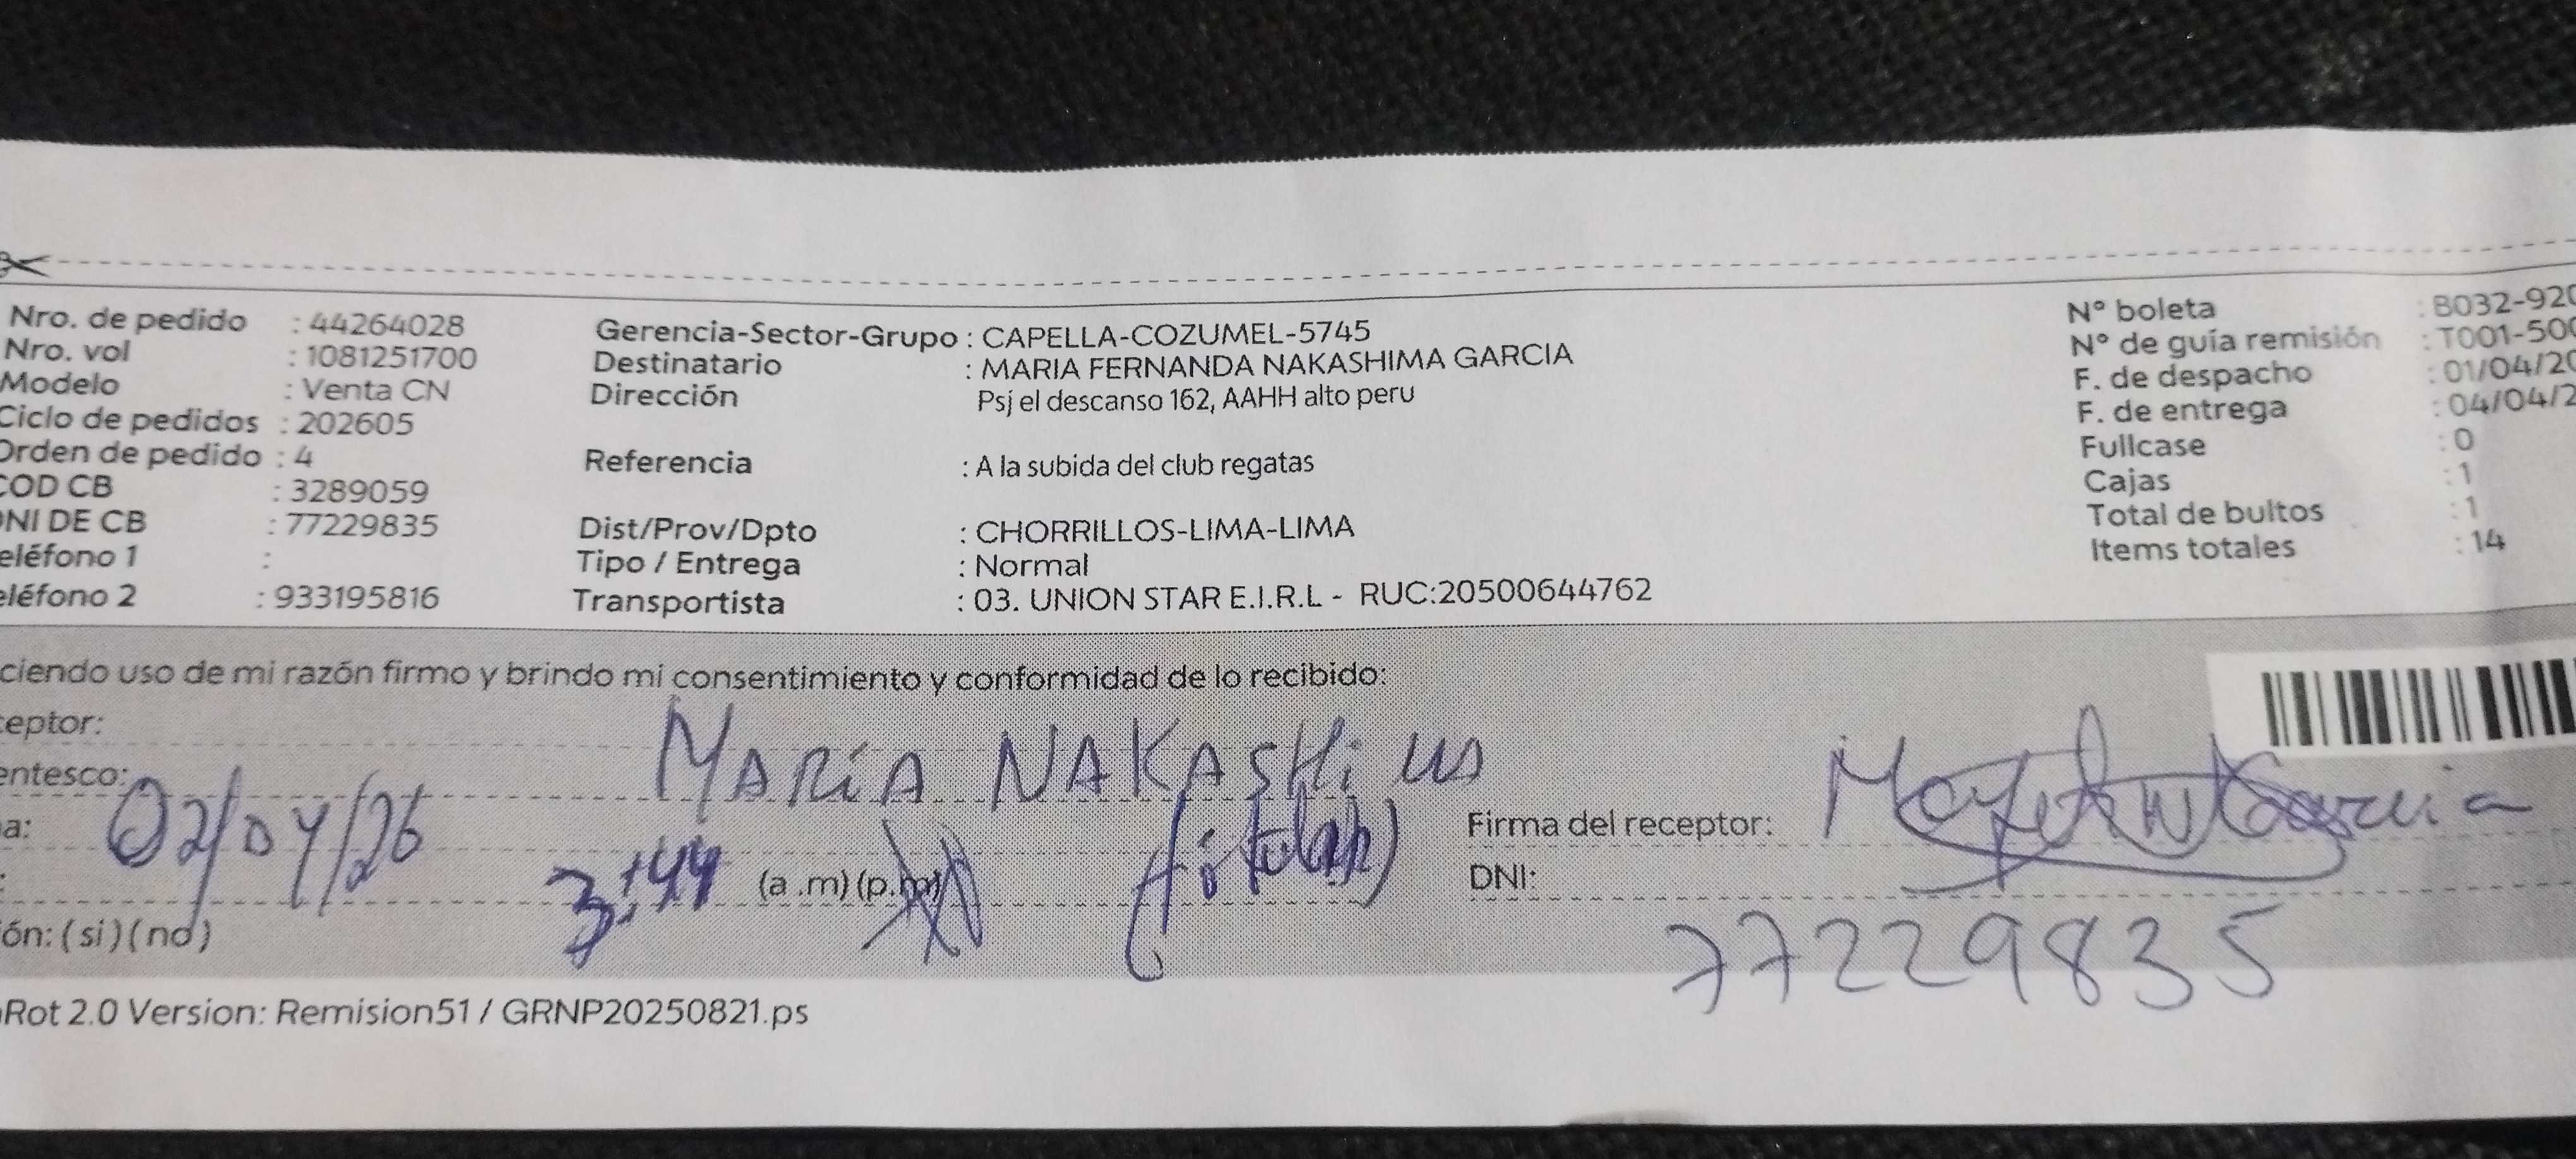 Nro. de pedido : 44264028
Nro. vol : 1081251700
Modelo : Venta CN
Ciclo de pedidos : 202605
Orden de pedido : 4
COD CB : 3289059
DNI DE CB : 77229835
eléfono 1 :
eléfono 2 : 933195816
Gerencia-Sector-Grupo : CAPELLA-COZUMEL-5745
Destinatario : MARIA FERNANDA NAKASHIMA GARCIA
Dirección Psj el descanso 162, AAHH alto peru
Referencia : A la subida del club regatas
Dist/Prov/Dpto : CHORRILLOS-LIMA-LIMA
Tipo / Entrega : Normal
Transportista : 03. UNION STAR E.I.R.L - RUC:20500644762
N° boleta : B032-920
N° de guía remisión : T001-500
F. de despacho : 01/04/20
F. de entrega : 04/04/2
Fullcase : 0
Cajas : 1
Total de bultos : 1
Items totales : 14
ciendo uso de mi razón firmo y brindo mi consentimiento y conformidad de lo recibido:
ceptor: MARIA
entesco:
a: 02/04/26
: 3:44 (a .m) (p.m) (titular)
Firma del receptor:
DNI: 77229835
ón: ( si ) ( no )
Rot 2.0 Version: Remision51 / GRNP20250821.ps